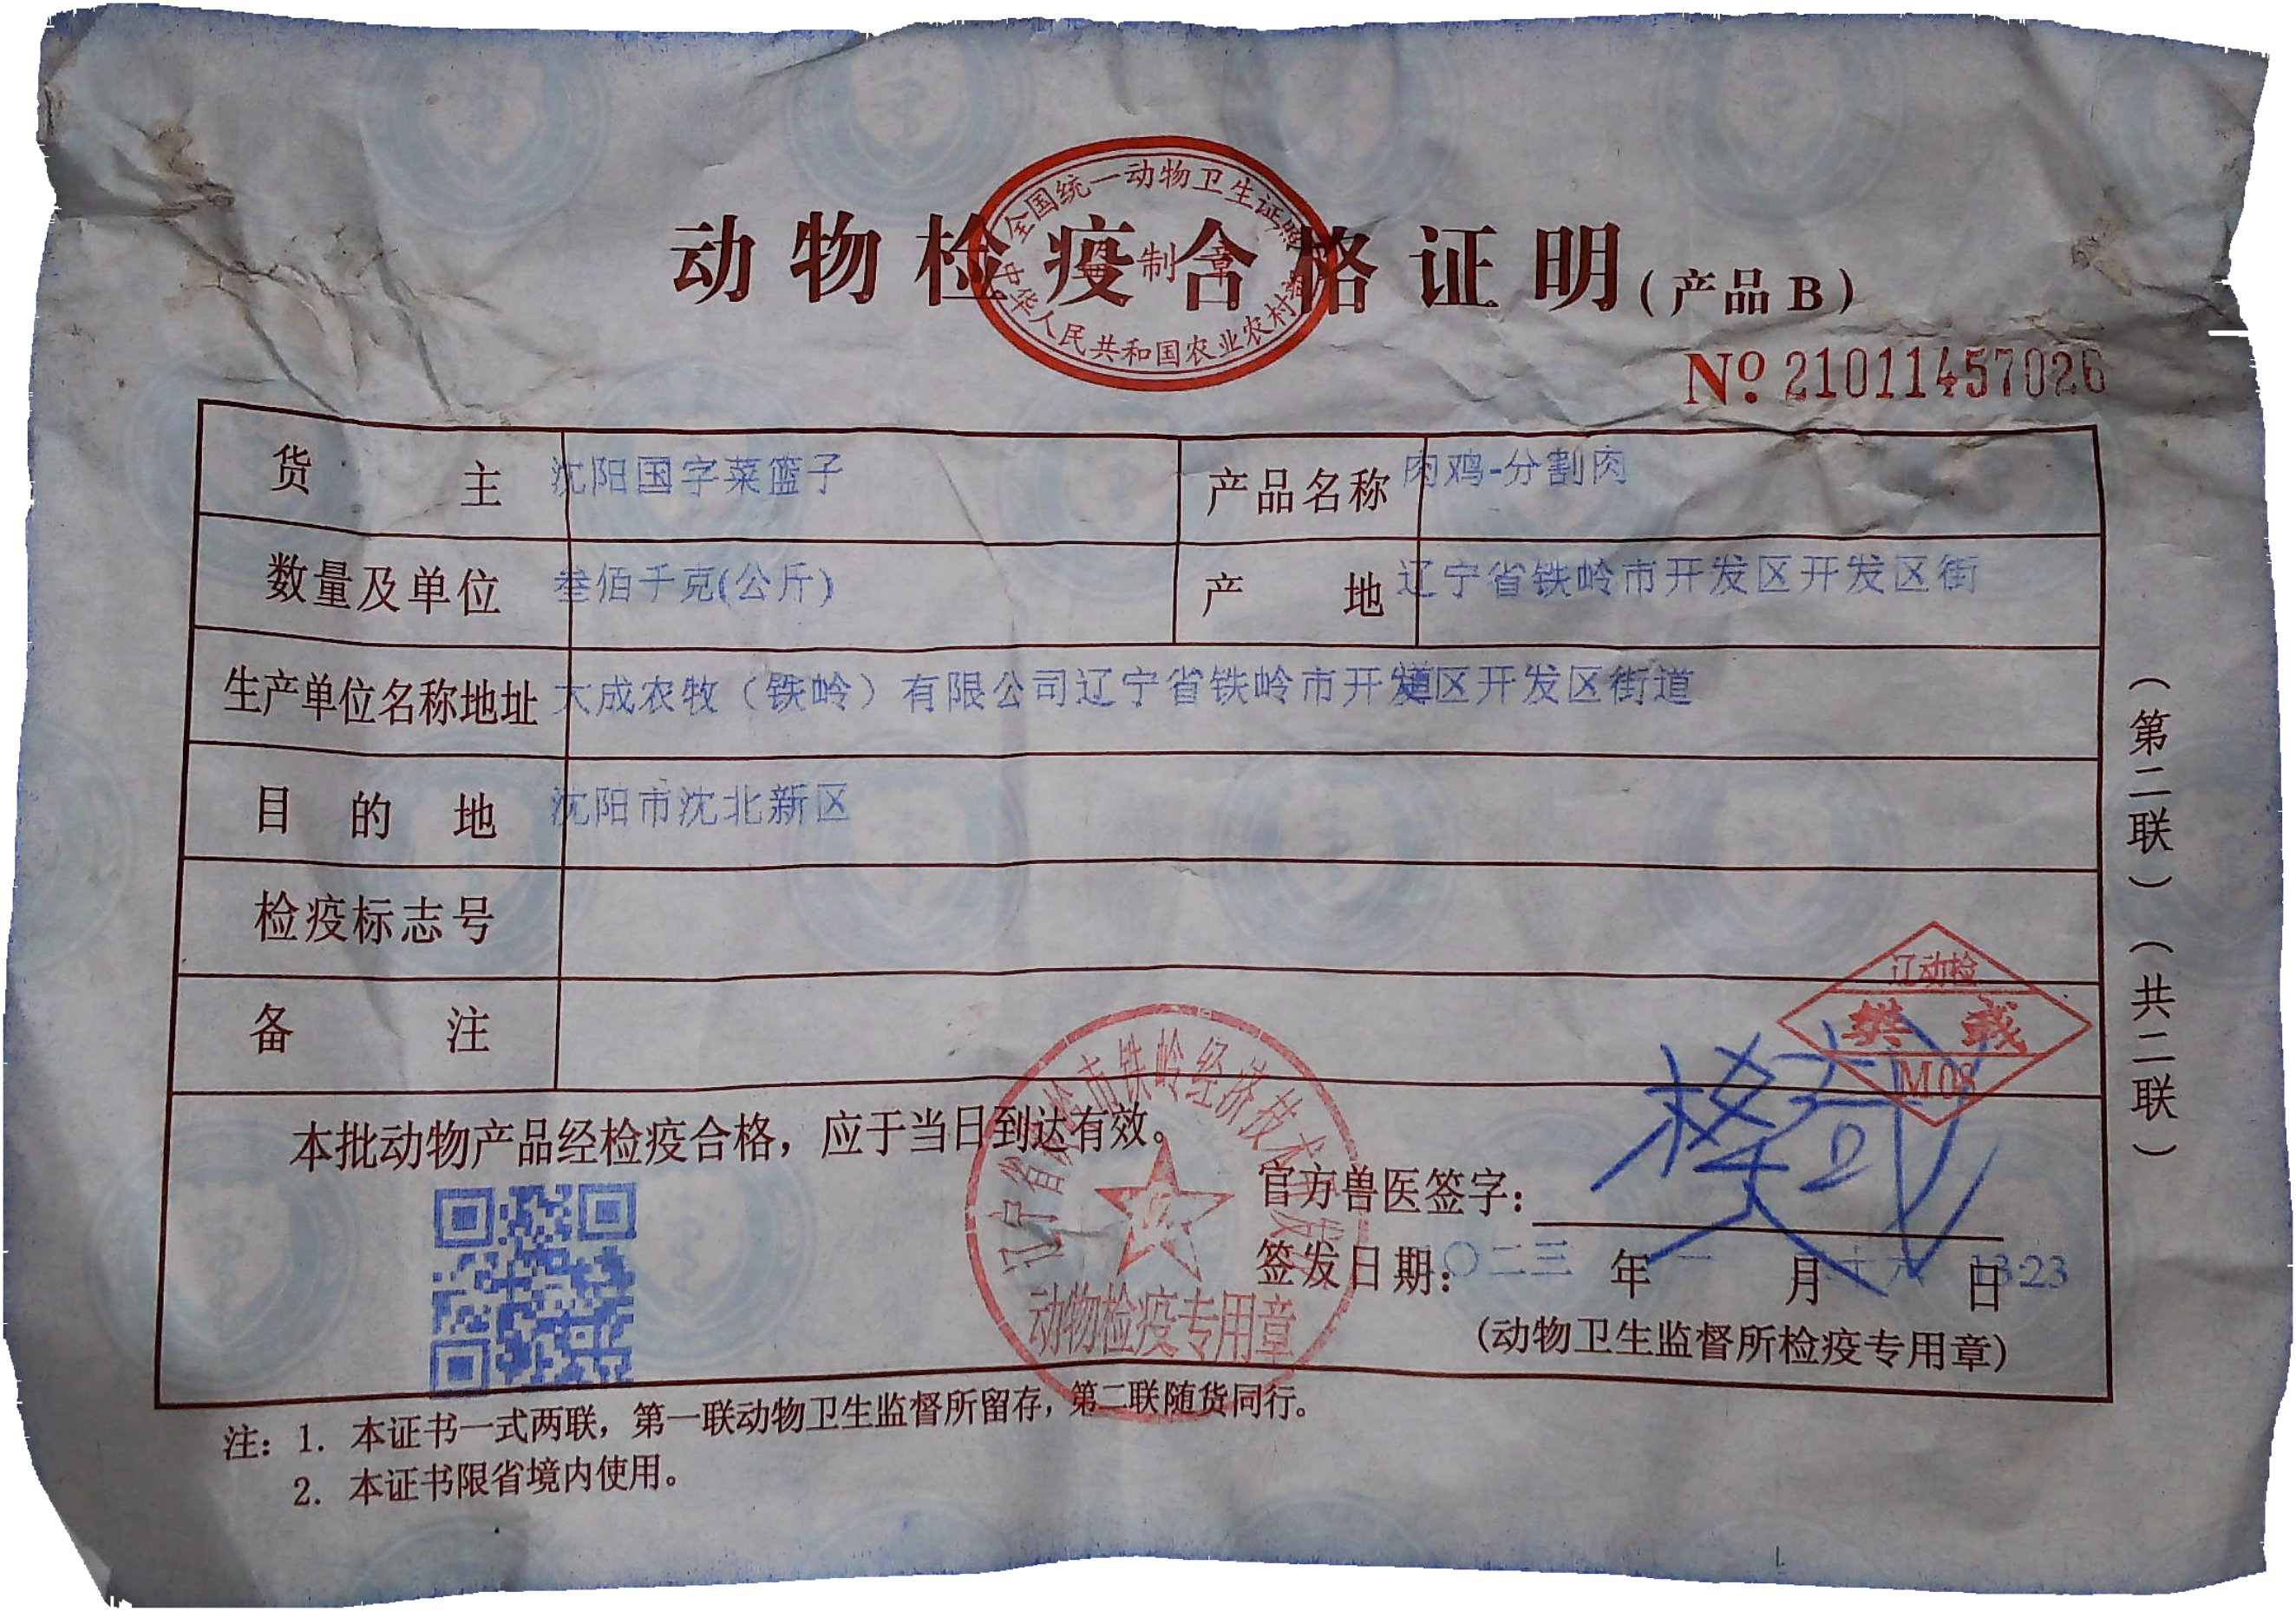 全国统一动物卫生证照
监制章
中华人民共和国农业农村部
动物检疫合格证明(产品B)
№ 21011457026
货主 沈阳国字菜篮子 产品名称 肉鸡-分割肉
数量及单位 叁佰千克(公斤) 产地 辽宁省铁岭市开发区开发区街
道
生产单位名称地址 大成农牧（铁岭）有限公司辽宁省铁岭市开发区开发区街道
目的地 沈阳市沈北新区
检疫标志号
备注
辽动检
樊
M08
本批动物产品经检疫合格，应于当日到达有效。
辽宁省铁岭市铁岭经济技术开发
动物检疫专用章
官方兽医签字：
签发日期：〇二三年一月十六日 13:23
(动物卫生监督所检疫专用章)
(第二联)(共二联)
注：1. 本证书一式两联，第一联动物卫生监督所留存，第二联随货同行。
2. 本证书限省境内使用。